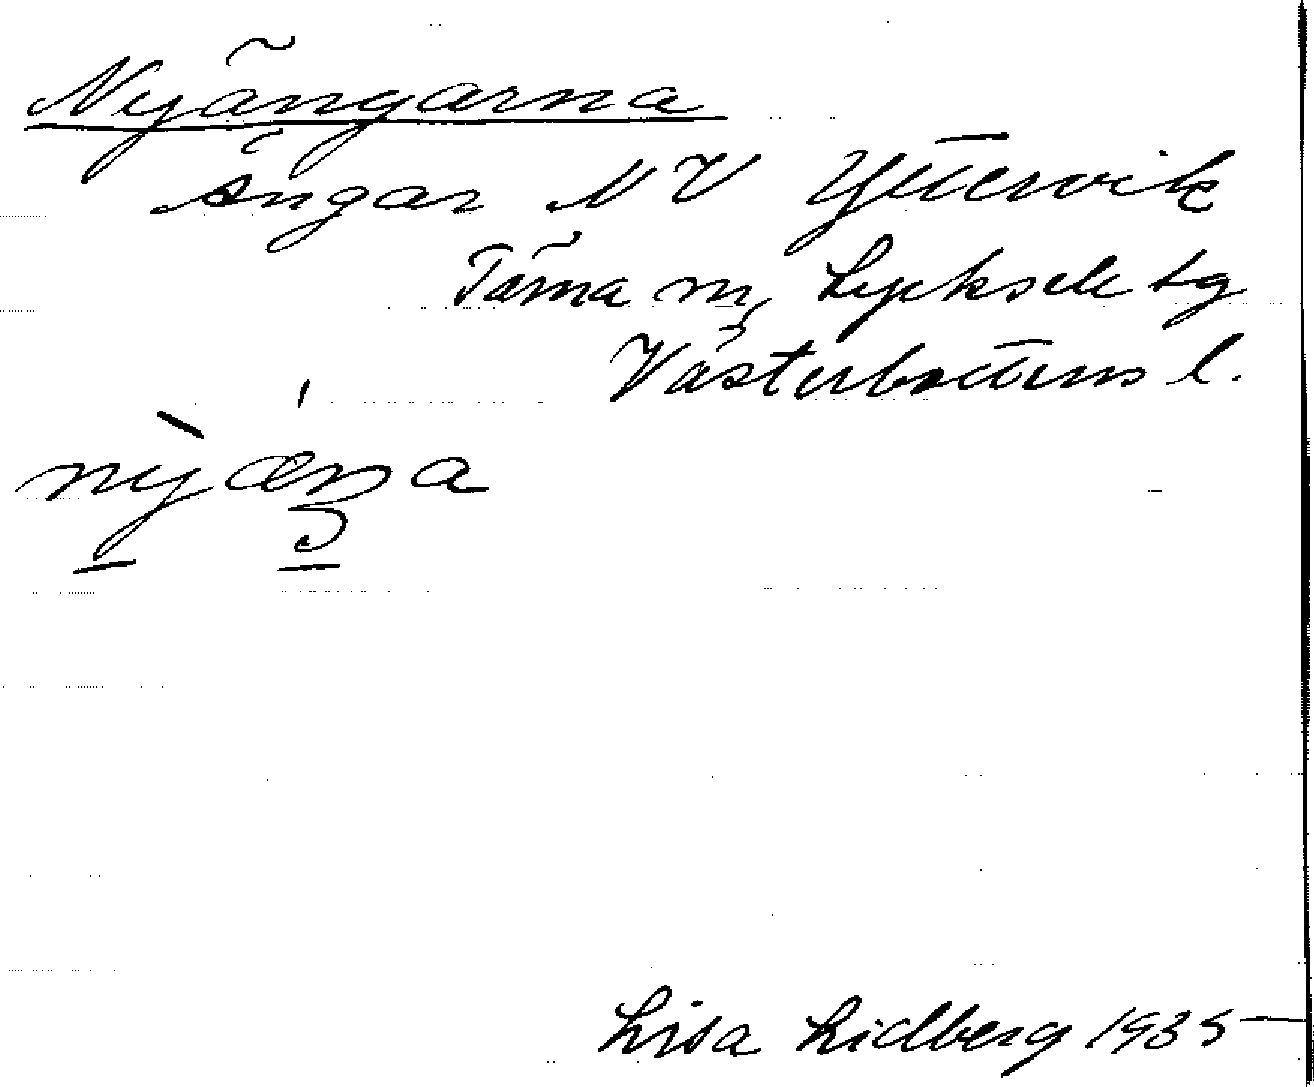 Nyängarna
ängar NV Yttervik
Tärna sn, Lycksele tg
Västerbottens l.
Lisa Lidberg 1935